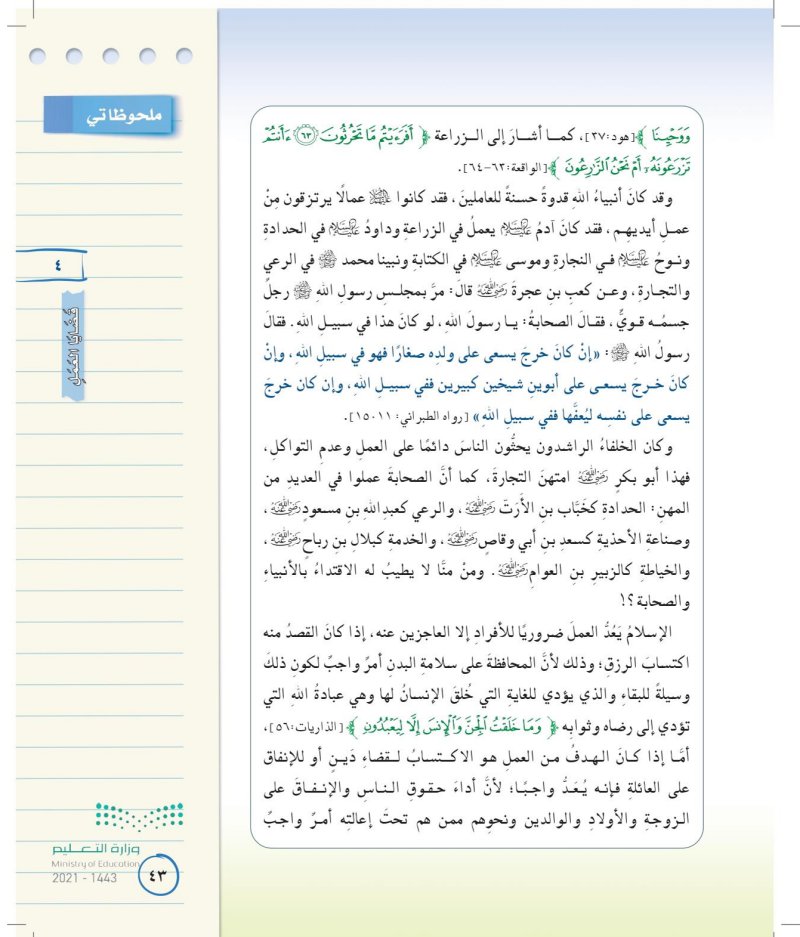 ملحوظاتي
٤
قضايا العمل
وَوَحْيِنَا ﴾[هود:٣٧]، كمـا أشـارَ إلى الـزراعة ﴿ أَفَرَءَيْتُم مَّا تَحْرُثُونَ ﴿٦٣﴾ ءَأَنتُمْ
تَزْرَعُونَهُۥٓ أَمْ نَحْنُ الزَّارِعُونَ ﴾[الواقعة:٦٣-٦٤].
وقد كانَ أنبياءُ اللهِ قدوةً حسنةً للعاملينَ، فقد كانوا عليهم السلام عمالًا يرتزقون مِنْ
عمـلِ أيديهـم ، فقد كانَ آدمُ عليه السلام يعملُ في الزراعةِ وداودُ عليه السلام في الحدادةِ
ونـوحُ عليه السلام فـي النجارةِ وموسى عليه السلام في الكتابةِ ونبينا محمد ﷺ في الرعي
والتجـارةِ ، وعـن كعبِ بن عجرةَ رضي الله عنه قالَ: مرَّ بمجلسِ رسولِ اللهِ ﷺ رجلٌ
جسمُـه قـويٌّ ، فقـالَ الصحابةُ: يـا رسولَ اللهِ، لو كانَ هذا في سبيـلِ اللهِ. فقالَ
رسولُ اللهِ ﷺ : «إنْ كان خرجَ يسعى على ولدِه صغارًا فهو في سبيلِ اللهِ، وإنْ
كانَ خـرجَ يسعـى على أبوينِ شيخين كبيرين ففي سبيـلِ اللهِ، وإن كان خرجَ
يسعى على نفسِـه ليُعفَّها ففي سبيلِ اللهِ» [رواه الطبراني: ١٥٠١١].
وكان الخلفاءُ الراشدون يحثُّون الناسَ دائمًا على العملِ وعدمِ التواكلِ،
فهذا أبو بكرٍ رضي الله عنه امتهنَ التجارةَ، كما أنَّ الصحابةَ عملوا في العديدِ من
المهنِ: الحدادةِ كخَبَّاب بنِ الأَرَتّ رضي الله عنه ، والرعي كعبدِاللهِ بنِ مسعودٍ رضي الله عنه ،
وصناعةِ الأحذيةِ كسعدِ بنِ أبي وقاصٍ رضي الله عنه ، والخدمةِ كبلالِ بن رباحٍ رضي الله عنه ،
والخياطةِ كالزبيرِ بنِ العوامِ رضي الله عنه . ومنْ منَّا لا يطيبُ له الاقتداءُ بالأنبياءِ
والصحابة؟!
الإسلامُ يَعُدُّ العملَ ضروريًا للأفرادِ إلا العاجزين عنه، إذا كانَ القصدُ منه
اكتسابَ الرزقِ؛ وذلك لأنَّ المحافظةَ على سلامةِ البدنِ أمرٌ واجبٌ لكونِ ذلكَ
وسيلةً للبقاءِ والذي يؤدي للغايةِ التي خُلقَ الإنسانُ لها وهي عبادةُ اللهِ التي
تؤدي إلى رضاه وثوابِه ﴿ وَمَا خَلَقْتُ الْجِنَّ وَالْإِنسَ إِلَّا لِيَعْبُدُونِ ﴾ [الذاريات:٥٦]،
أمَّا إذا كـانَ الهـدفُ مـن العملِ هو الاكـتسابُ لـقضاءِ دَيـنٍ أو للإنفاقِ
على العائلةِ فإنـه يُـعَـدُّ واجبًـا؛ لأنَّ أداءَ حقـوقِ الـناسِ والإنـفـاقَ على
الـزوجةِ والأولادِ والوالدين ونحوِهم ممن هم تحتَ إعالتِه أمـرٌ واجبٌ
وزارة التعـليم
Ministry of Education
2021 - 1443
٤٣